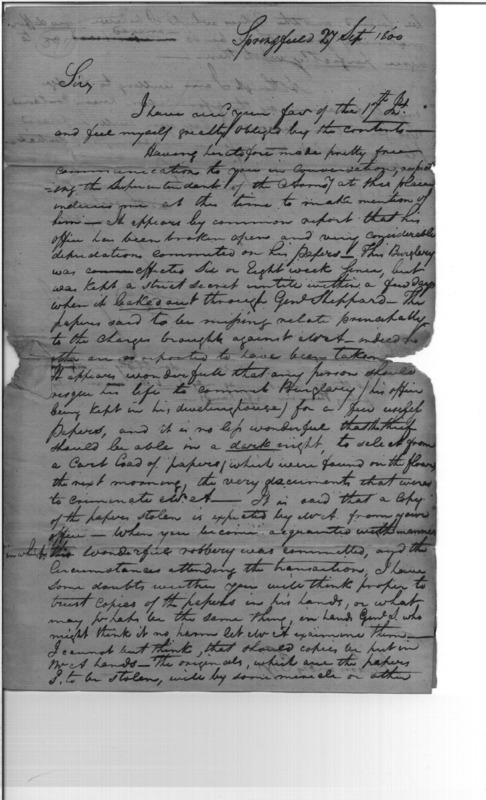 Springfield 27 Sept 1800
Sir,
I have rec'd your fav of the 17th Inst.
and feel myself greatly obliged by the contents —
Having heretofore made pretty free
communications to you in conversation, respect
=ing the Superintendent of the Armory at this place,
induces me at this time to make mention of
him — It appears by common report that his
office has been broken open and very considerable
depredations committed on his Papers — This Burglary
was effected Six or Eight week since, but
was kept a strict secret untill within a few days
when it leakes out through Genl Sheppard — The
papers said to be missing relate principally
to the charges brought against
are reported to have been taken
It appears wonderfull that any person should
risque his life to commit Burglary (his office
being kept in his dwelinghouse) for a few useless
Papers, and it is no less wonderful that the thief
should be able in a dark night to select from
a Cart load of papers, (which were found on the floor
the next morning, the very documents that were
to criminate — It is said that a Copy
of the papers stolen is expected by from your
office — When you become acquainted with manner
in which this Wonderful robbery was committed, and the
Circumstances attending the transaction, I have
some doubts wether you will think proper to
trust copies of the papers in his hands, or what
may perhaps be the same thing, in hands Genl S. who
might think it no harm let examine them. —
I cannot but think, that should copies be put in
hands — The originals, which are the papers
S. to be stolen, will by some miracle or other